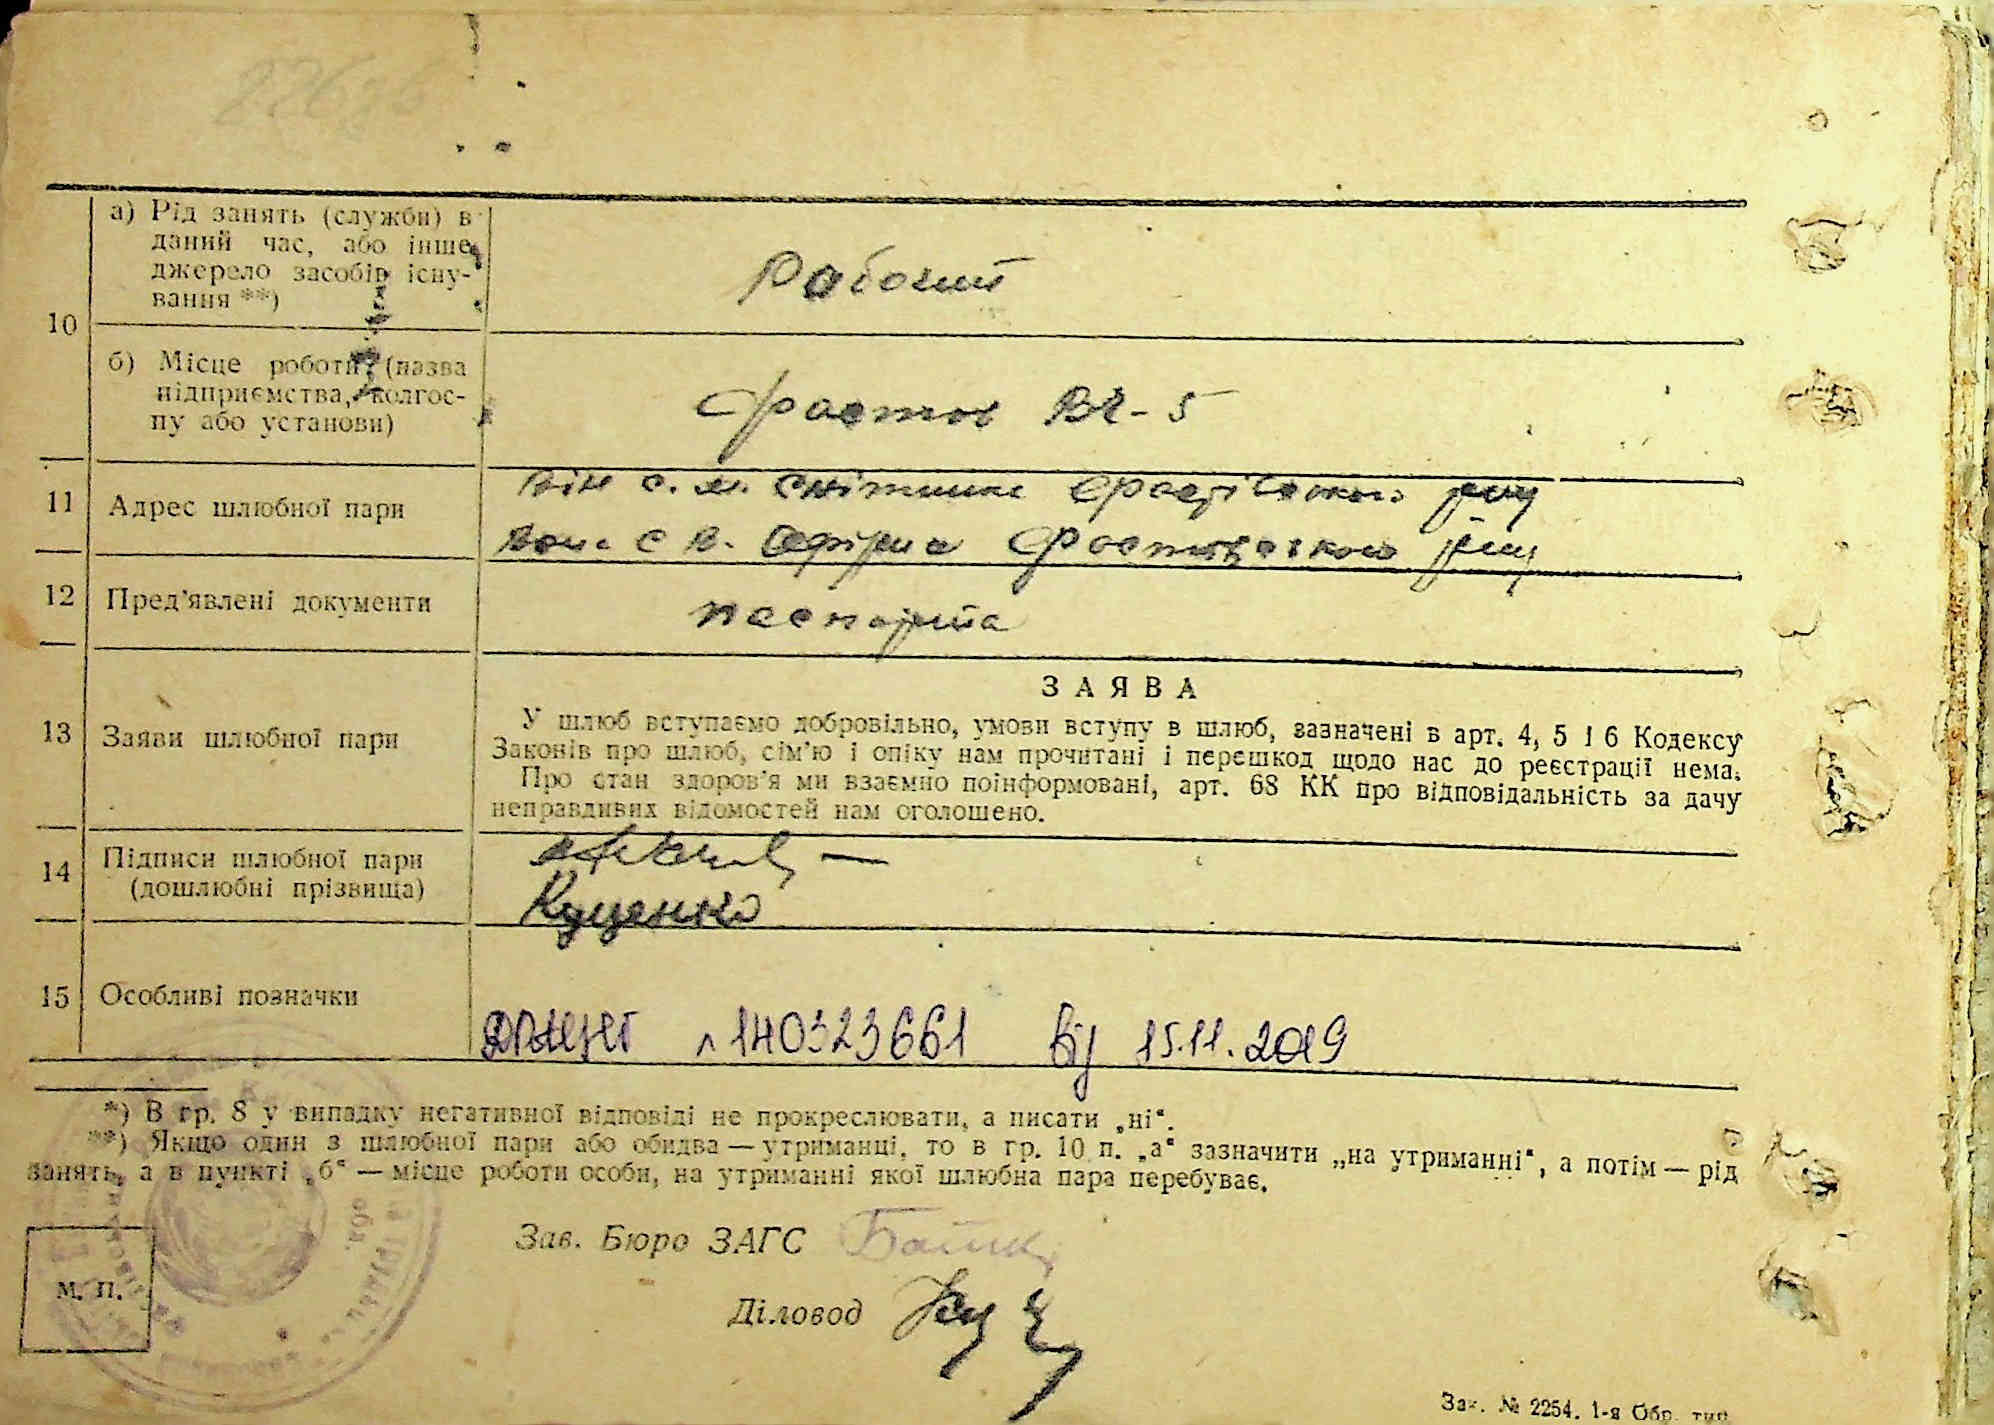 10
а) Рід занять (служби) в
даний час, або інше
джерело засобів існу-
вання **)
Рабочий
б) Місце роботи (назва
підприємства, колгос-
пу або установи)
Фастов ВЧ-5
11
Адрес шлюбної пари
він с. м. Снітинка Фастівського р-ну
вона с в. Офірна Фастівського р-ну
12
Пред'явлені документи
паспорта
13
Заяви шлюбної пари
ЗАЯВА
У шлюб вступаємо добровільно, умови вступу в шлюб, зазначені в арт. 4, 5 і 6 Кодексу
Законів про шлюб, сім'ю і опіку нам прочитані і перешкод щодо нас до реєстрації нема.
Про стан здоров'я ми взаємно поінформовані, арт. 68 КК про відповідальність за дачу
неправдивих відомостей нам оголошено.
14
Підписи шлюбної пари
(дошлюбні прізвища)
Куценко
15
Особливі позначки
140323661 від 15.11.2019
*) В гр. 8 у випадку негативної відповіді не прокреслювати, а писати „ні“.
**) Якщо один з шлюбної пари або обидва — утриманці, то в гр. 10 п. „а“ зазначити „на утриманні“, а потім — рід
занять, а в пункті „б“ — місце роботи особи, на утриманні якої шлюбна пара перебуває.
Зав. Бюро ЗАГС
Діловод
М. П.
Зак. № 2254. 1-я Обр. тип.